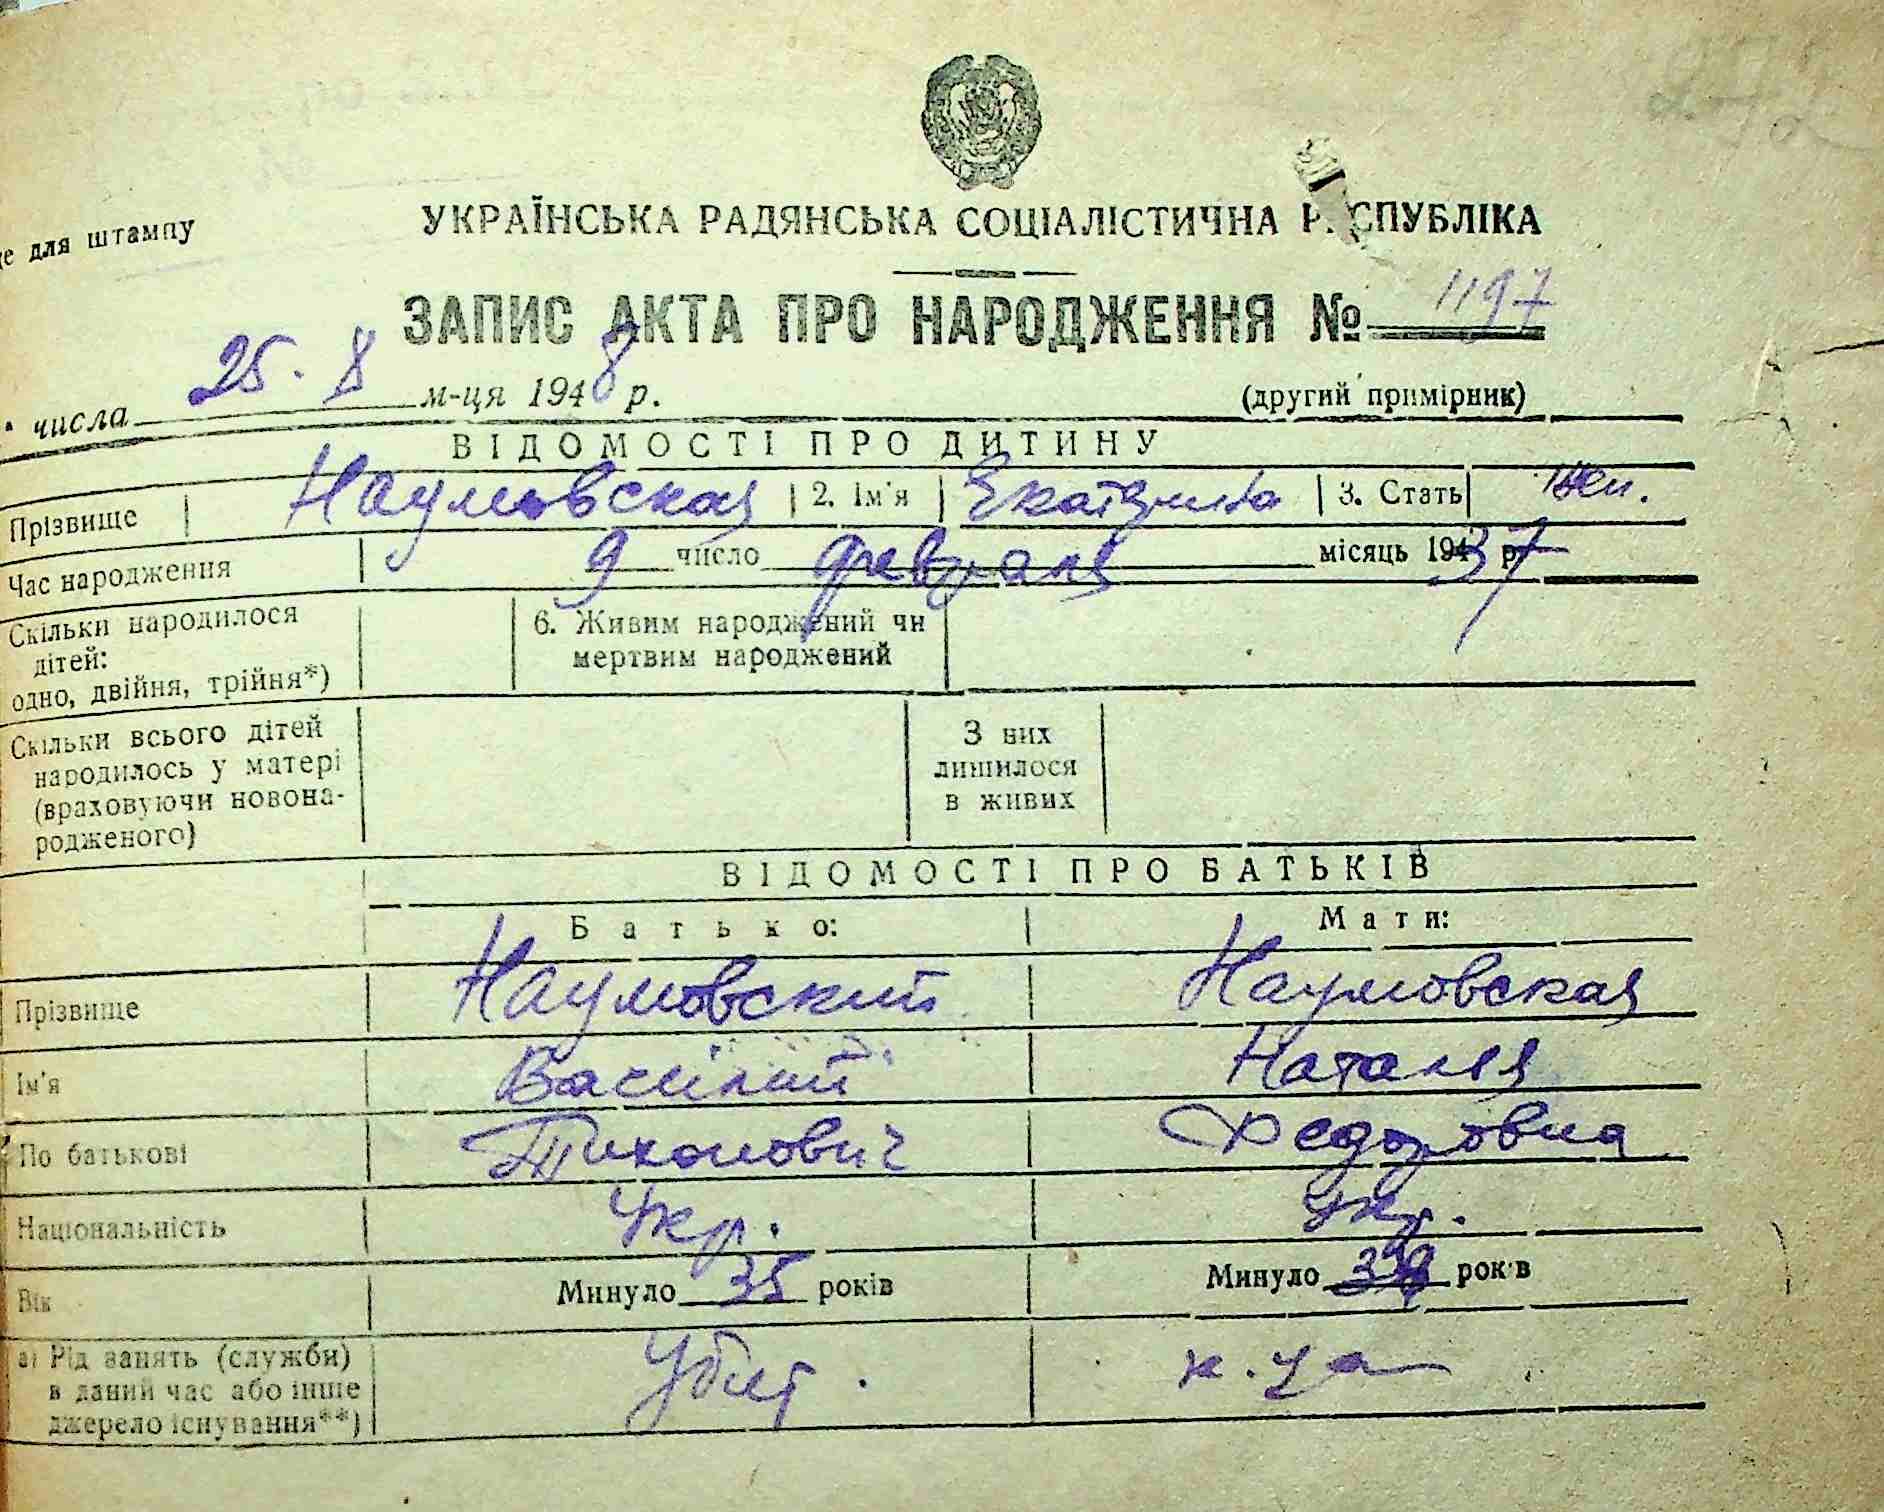 242
УКРАЇНСЬКА РАДЯНСЬКА СОЦІАЛІСТИЧНА РЕСПУБЛІКА
це для штампу
ЗАПИС АКТА ПРО НАРОДЖЕННЯ № 1197
числа 25. X м-ця 1948 р. (другий примірник)
ВІДОМОСТІ ПРО ДИТИНУ
Прізвище Наумовская 2. Ім'я Екатерина 3. Стать жен.
Час народження 9 число февраля місяць 1937 р.
Скільки народилося
дітей:
одно, двійня, трійня*)
6. Живим народжений чи
мертвим народжений
Скільки всього дітей
народилось у матері
(враховуючи новона-
родженого)
З них
лишилося
в живих
ВІДОМОСТІ ПРО БАТЬКІВ
Батько: Мати:
Прізвище Наумовский Наумовская
Ім'я Василий Наталия
По батькові Тихонович Федоровна
Національність Укр. Укр.
Вік Минуло 35 років Минуло років
а) Рід занять (служби)
в даний час або інше
джерело існування**)
Убит. к.ца